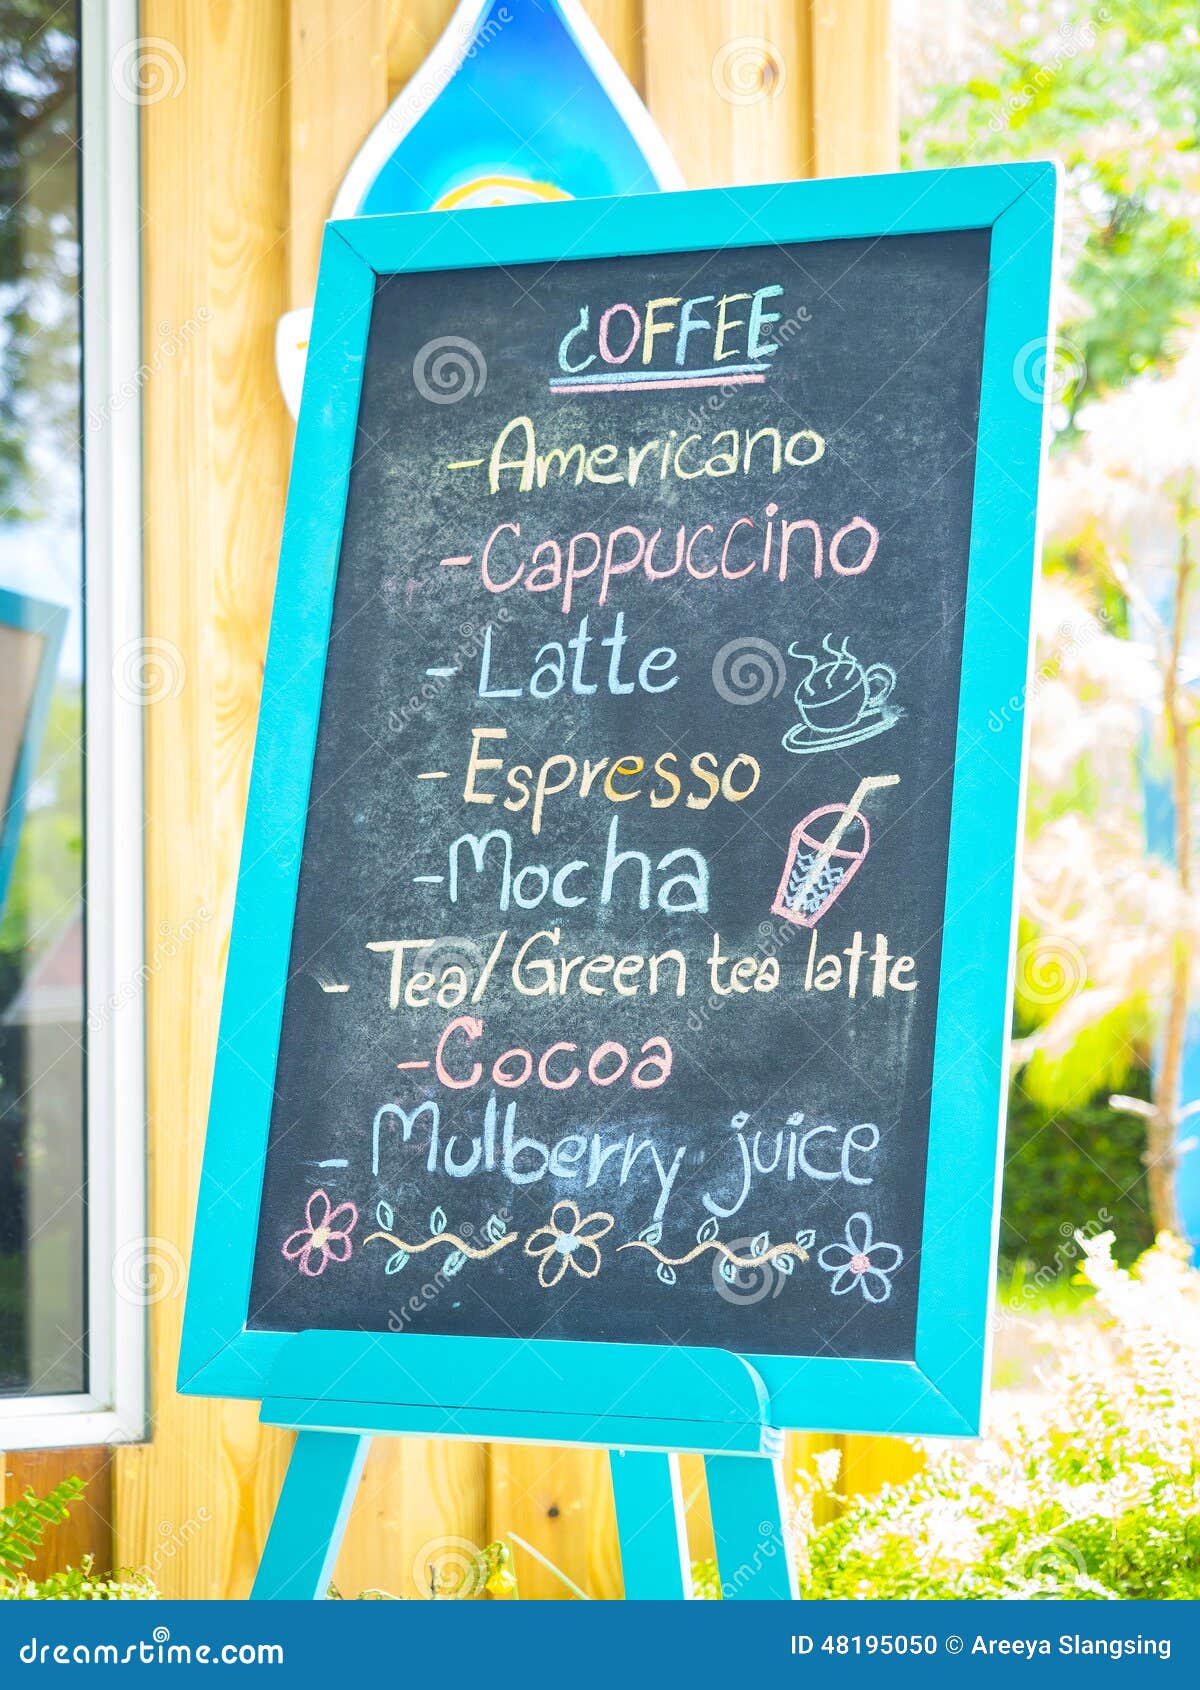 COFFEE
-Americano
-Cappuccino
-Latte
-Espresso
-Mocha
-Tea/Green tea latte
-Cocoa
-Mulberry juice
dreamstime.com
ID 48195050 © Areeya Slangsing